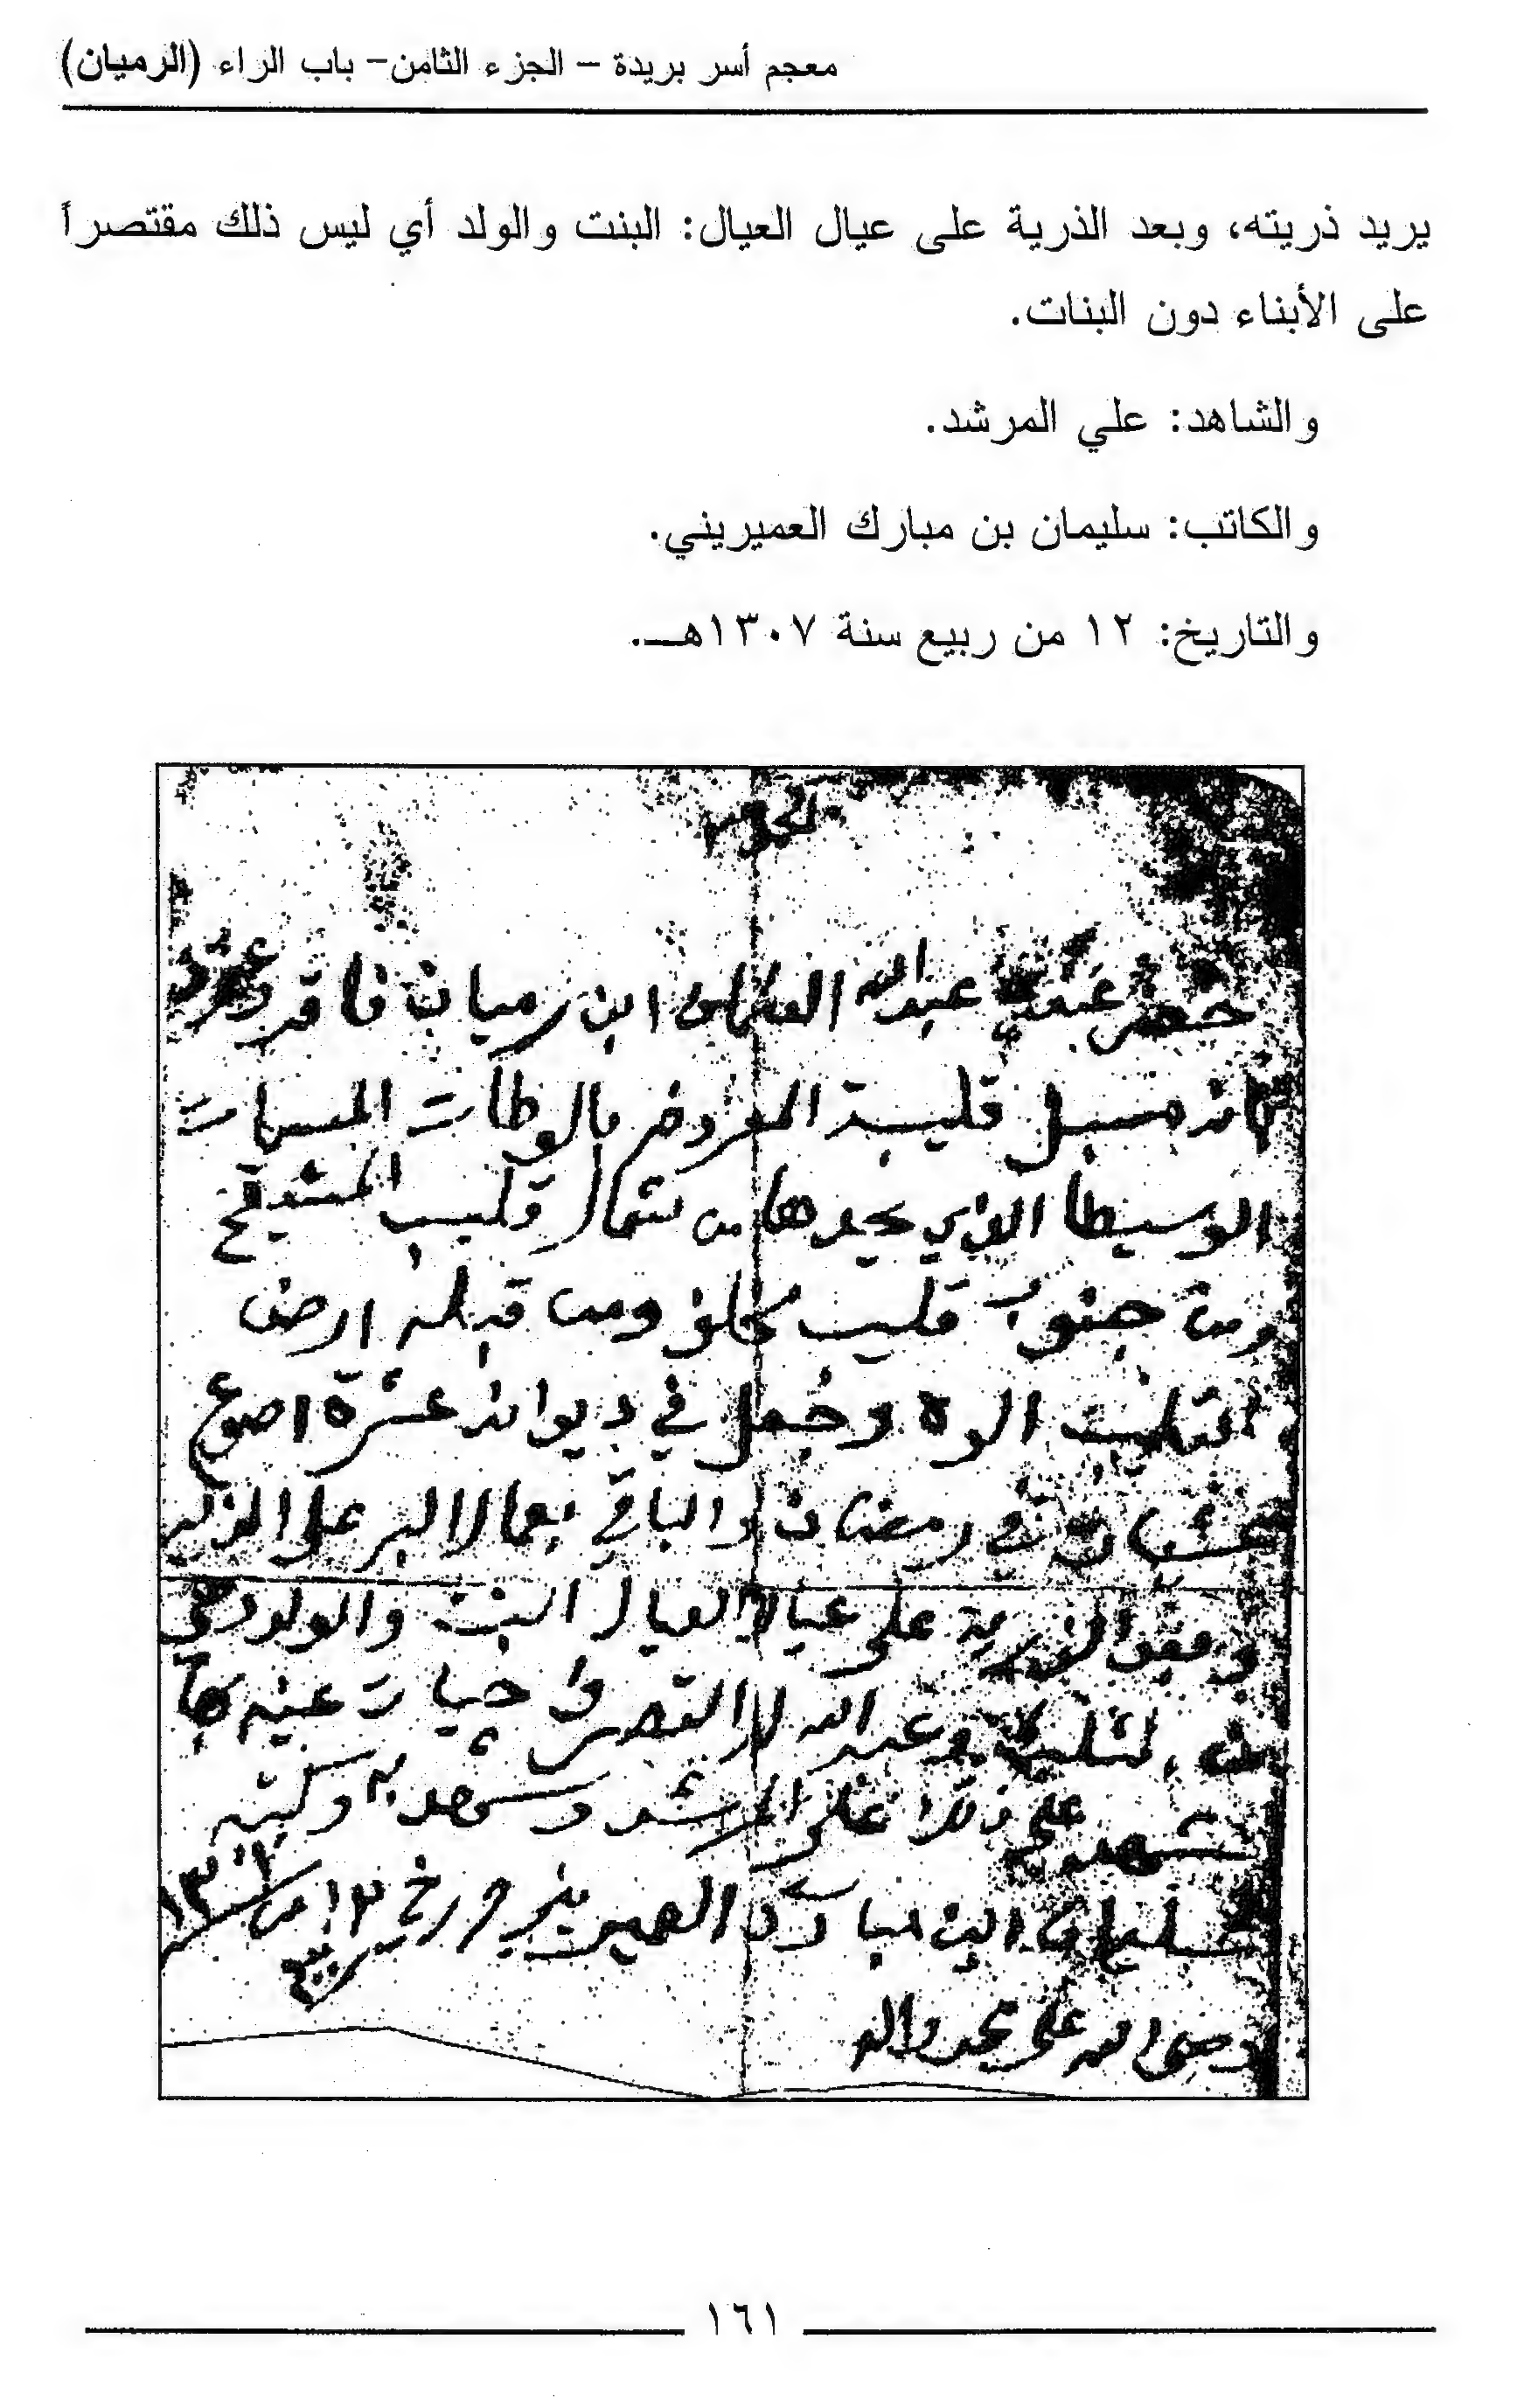 معجم أسر بريدة – الجزء الثامن– باب الراء (الرميان)
يريد ذريته، وبعد الذرية على عيال العيال: البنت والولد أي ليس ذلك مقتصراً
على الأبناء دون البنات.
والشاهد: علي المرشد.
والكاتب: سليمان بن مبارك العميريني.
والتاريخ: ١٢ من ربيع سنة ١٣٠٧هـ.
حضر عندي عبدالله ابن رميان فاقر
مسبل قليبه المعروفه بالوطات المسمات
الوسيطا الذي يحدها من شمال قليب المشيقح
ومن جنوب قليب ومن قبله ارض
القليب الوه وجعل في ديوانه عشرة اصوع
عشيات في رمضان والباقي بعمال البر على
الذرية على عيال العيال البنت والولد
وعبدالله القصر حيات عينه
شهد على ذلك علي المرشد وشهد به وكتبه
سليمان ابن مبارك العميريني ١٢ من
ربيع
وصلى الله على محمد واله
١٦١